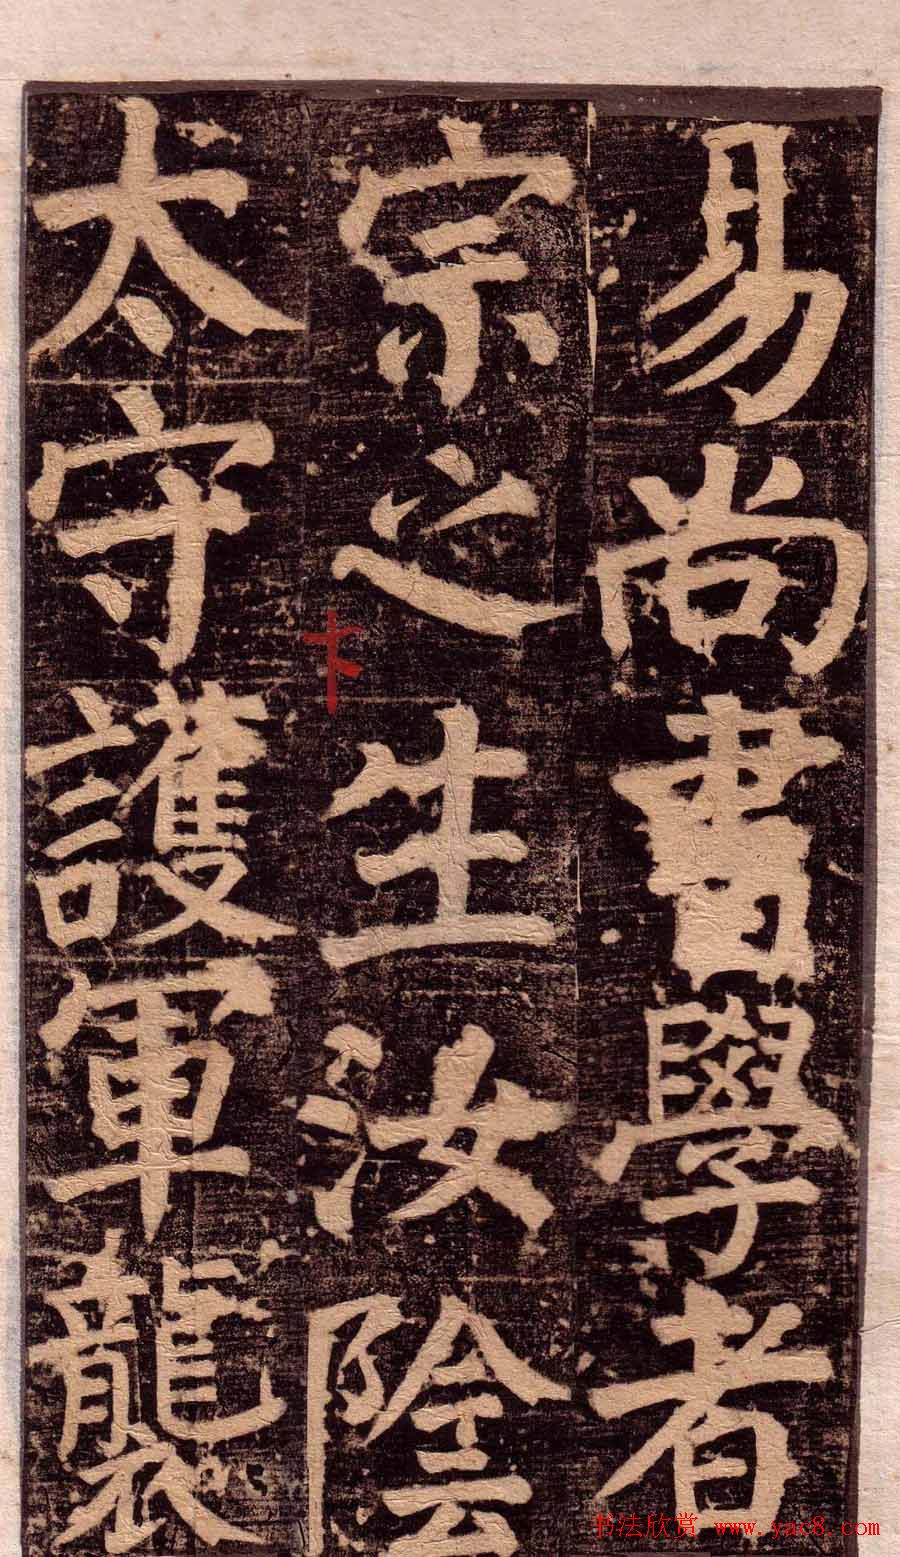 易尚書學者
宗之生汝陰
太守護軍襲
卞
书法欣赏 www.yac8.com